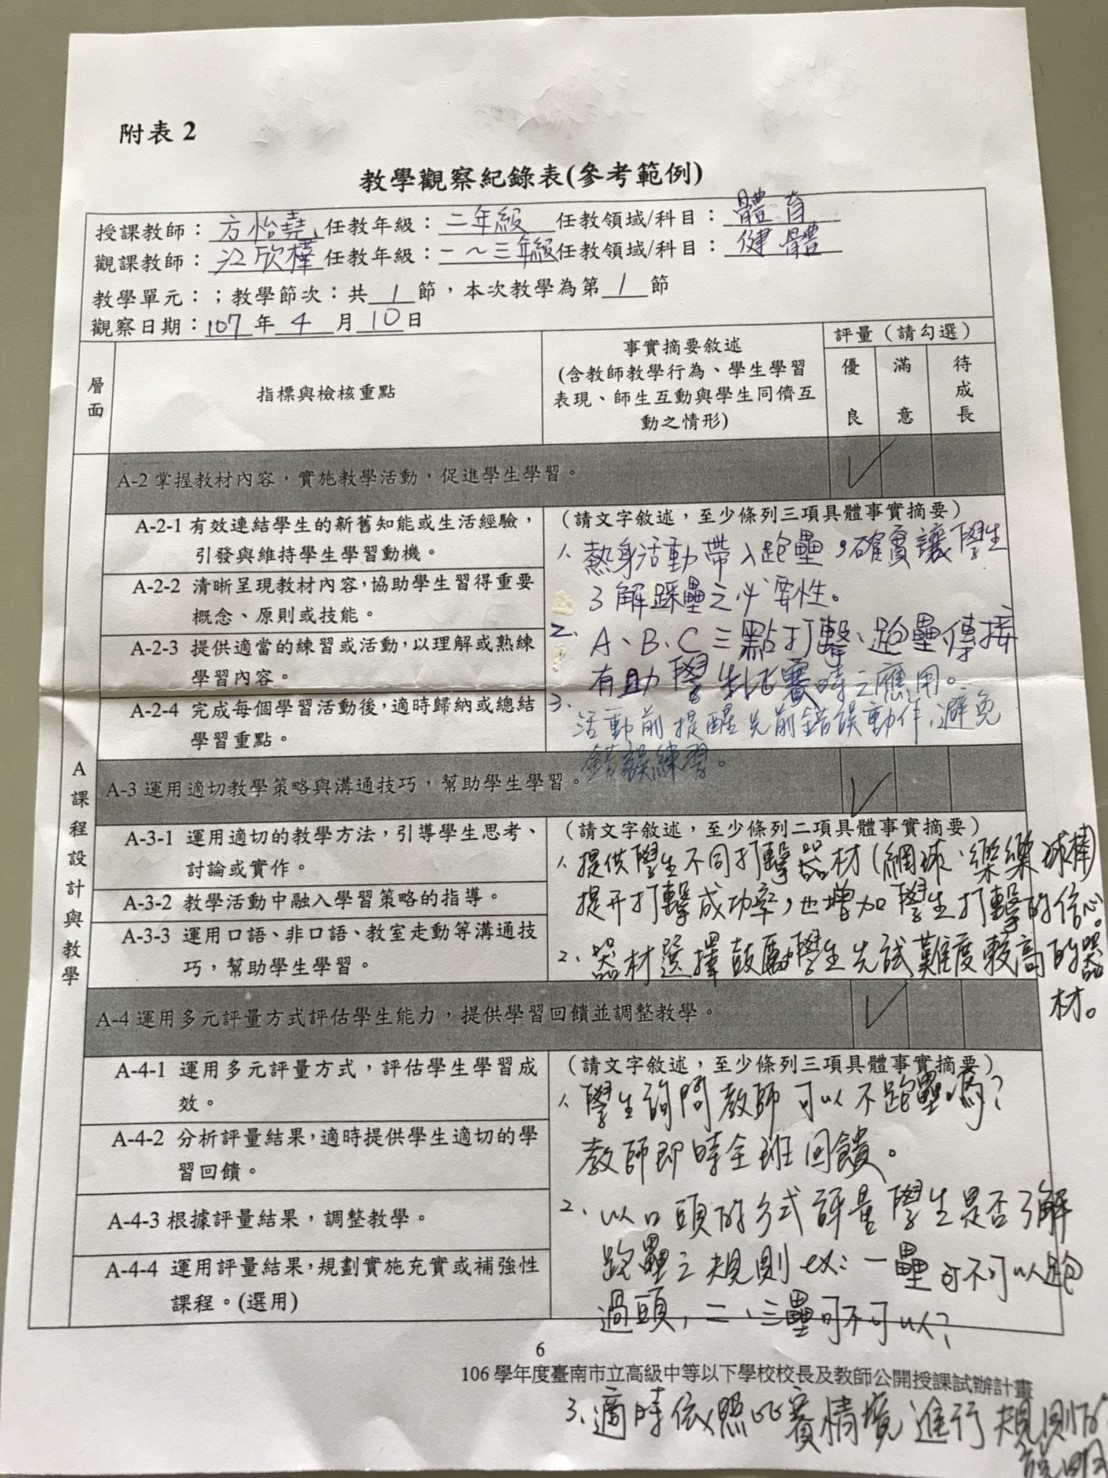 附表 2
教學觀察紀錄表(參考範例)
授課教師：方怡堯 任教年級：二年級 任教領域/科目：體育
觀課教師：江欣樺 任教年級：一～三年級 任教領域/科目：健體
教學單元：；教學節次：共 1 節，本次教學為第 1 節
觀察日期：107 年 4 月 10 日
層面
指標與檢核重點
事實摘要敘述
(含教師教學行為、學生學習
表現、師生互動與學生同儕互
動之情形)
評量（請勾選）
優良
滿意
待成長
A課程設計與教學
A-2 掌握教材內容，實施教學活動，促進學生學習。
A-2-1 有效連結學生的新舊知能或生活經驗，
引發與維持學生學習動機。
A-2-2 清晰呈現教材內容，協助學生習得重要
概念、原則或技能。
A-2-3 提供適當的練習或活動，以理解或熟練
學習內容。
A-2-4 完成每個學習活動後，適時歸納或總結
學習重點。
（請文字敘述，至少條列三項具體事實摘要）
1. 熱身活動帶入跑壘，確實讓學生
了解踩壘之必要性。
2. A、B、C三點打擊、跑壘傳接
有助學生比賽時之應用。
3.
活動前提醒先前錯誤動作，避免
錯誤練習。
A-3 運用適切教學策略與溝通技巧，幫助學生學習。
A-3-1 運用適切的教學方法，引導學生思考、
討論或實作。
A-3-2 教學活動中融入學習策略的指導。
A-3-3 運用口語、非口語、教室走動等溝通技
巧，幫助學生學習。
（請文字敘述，至少條列二項具體事實摘要）
1. 提供學生不同打擊器材(網球、樂樂球棒)
提升打擊成功率，也增加學生打擊的信心。
2. 器材選擇鼓勵學生先試難度較高的器
材。
A-4 運用多元評量方式評估學生能力，提供學習回饋並調整教學。
A-4-1 運用多元評量方式，評估學生學習成
效。
A-4-2 分析評量結果，適時提供學生適切的學
習回饋。
A-4-3 根據評量結果，調整教學。
A-4-4 運用評量結果，規劃實施充實或補強性
課程。(選用)
（請文字敘述，至少條列三項具體事實摘要）
1. 學生詢問教師可以不跑壘嗎？
教師即時全班回饋。
2. 以口頭的方式評量學生是否了解
跑壘之規則 ex：一壘可不可以跑
過頭，二、三壘可不可以？
6
106 學年度臺南市立高級中等以下學校校長及教師公開授課試辦計畫
3. 適時依照比賽情境進行規則的
說明